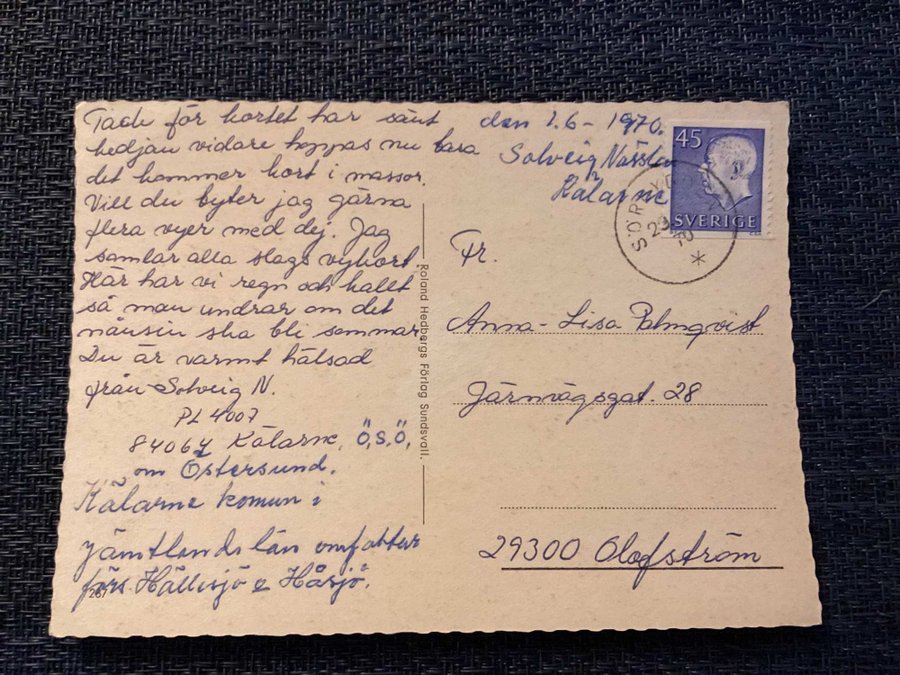 Tack för kortet har sänt
hedjan vidare hoppas nu bara
det kommer kort i massor.
Vill du byter jag gärna
flera vyer med dej. Jag
samlar alla slags vykort
Här har vi regn och kallt
så man undrar om det
nånsin ska bli sommar
Du är varmt hälsad
från Solveig N.
PL 4007
84064 Kälarne, Ö,S,Ö,
om Östersund.
Kälarne komun i
jämtlands län omfattar
förs Hällesjö o Håsjö.
267
Roland Hedbergs Förlag Sundsvall.
den 1.6 - 1970.
Solveig
Kälarne
45
SVERIGE
Fr.
Anna-Lisa Palmqvist
Järnvägsgat. 28
29300 Olofström